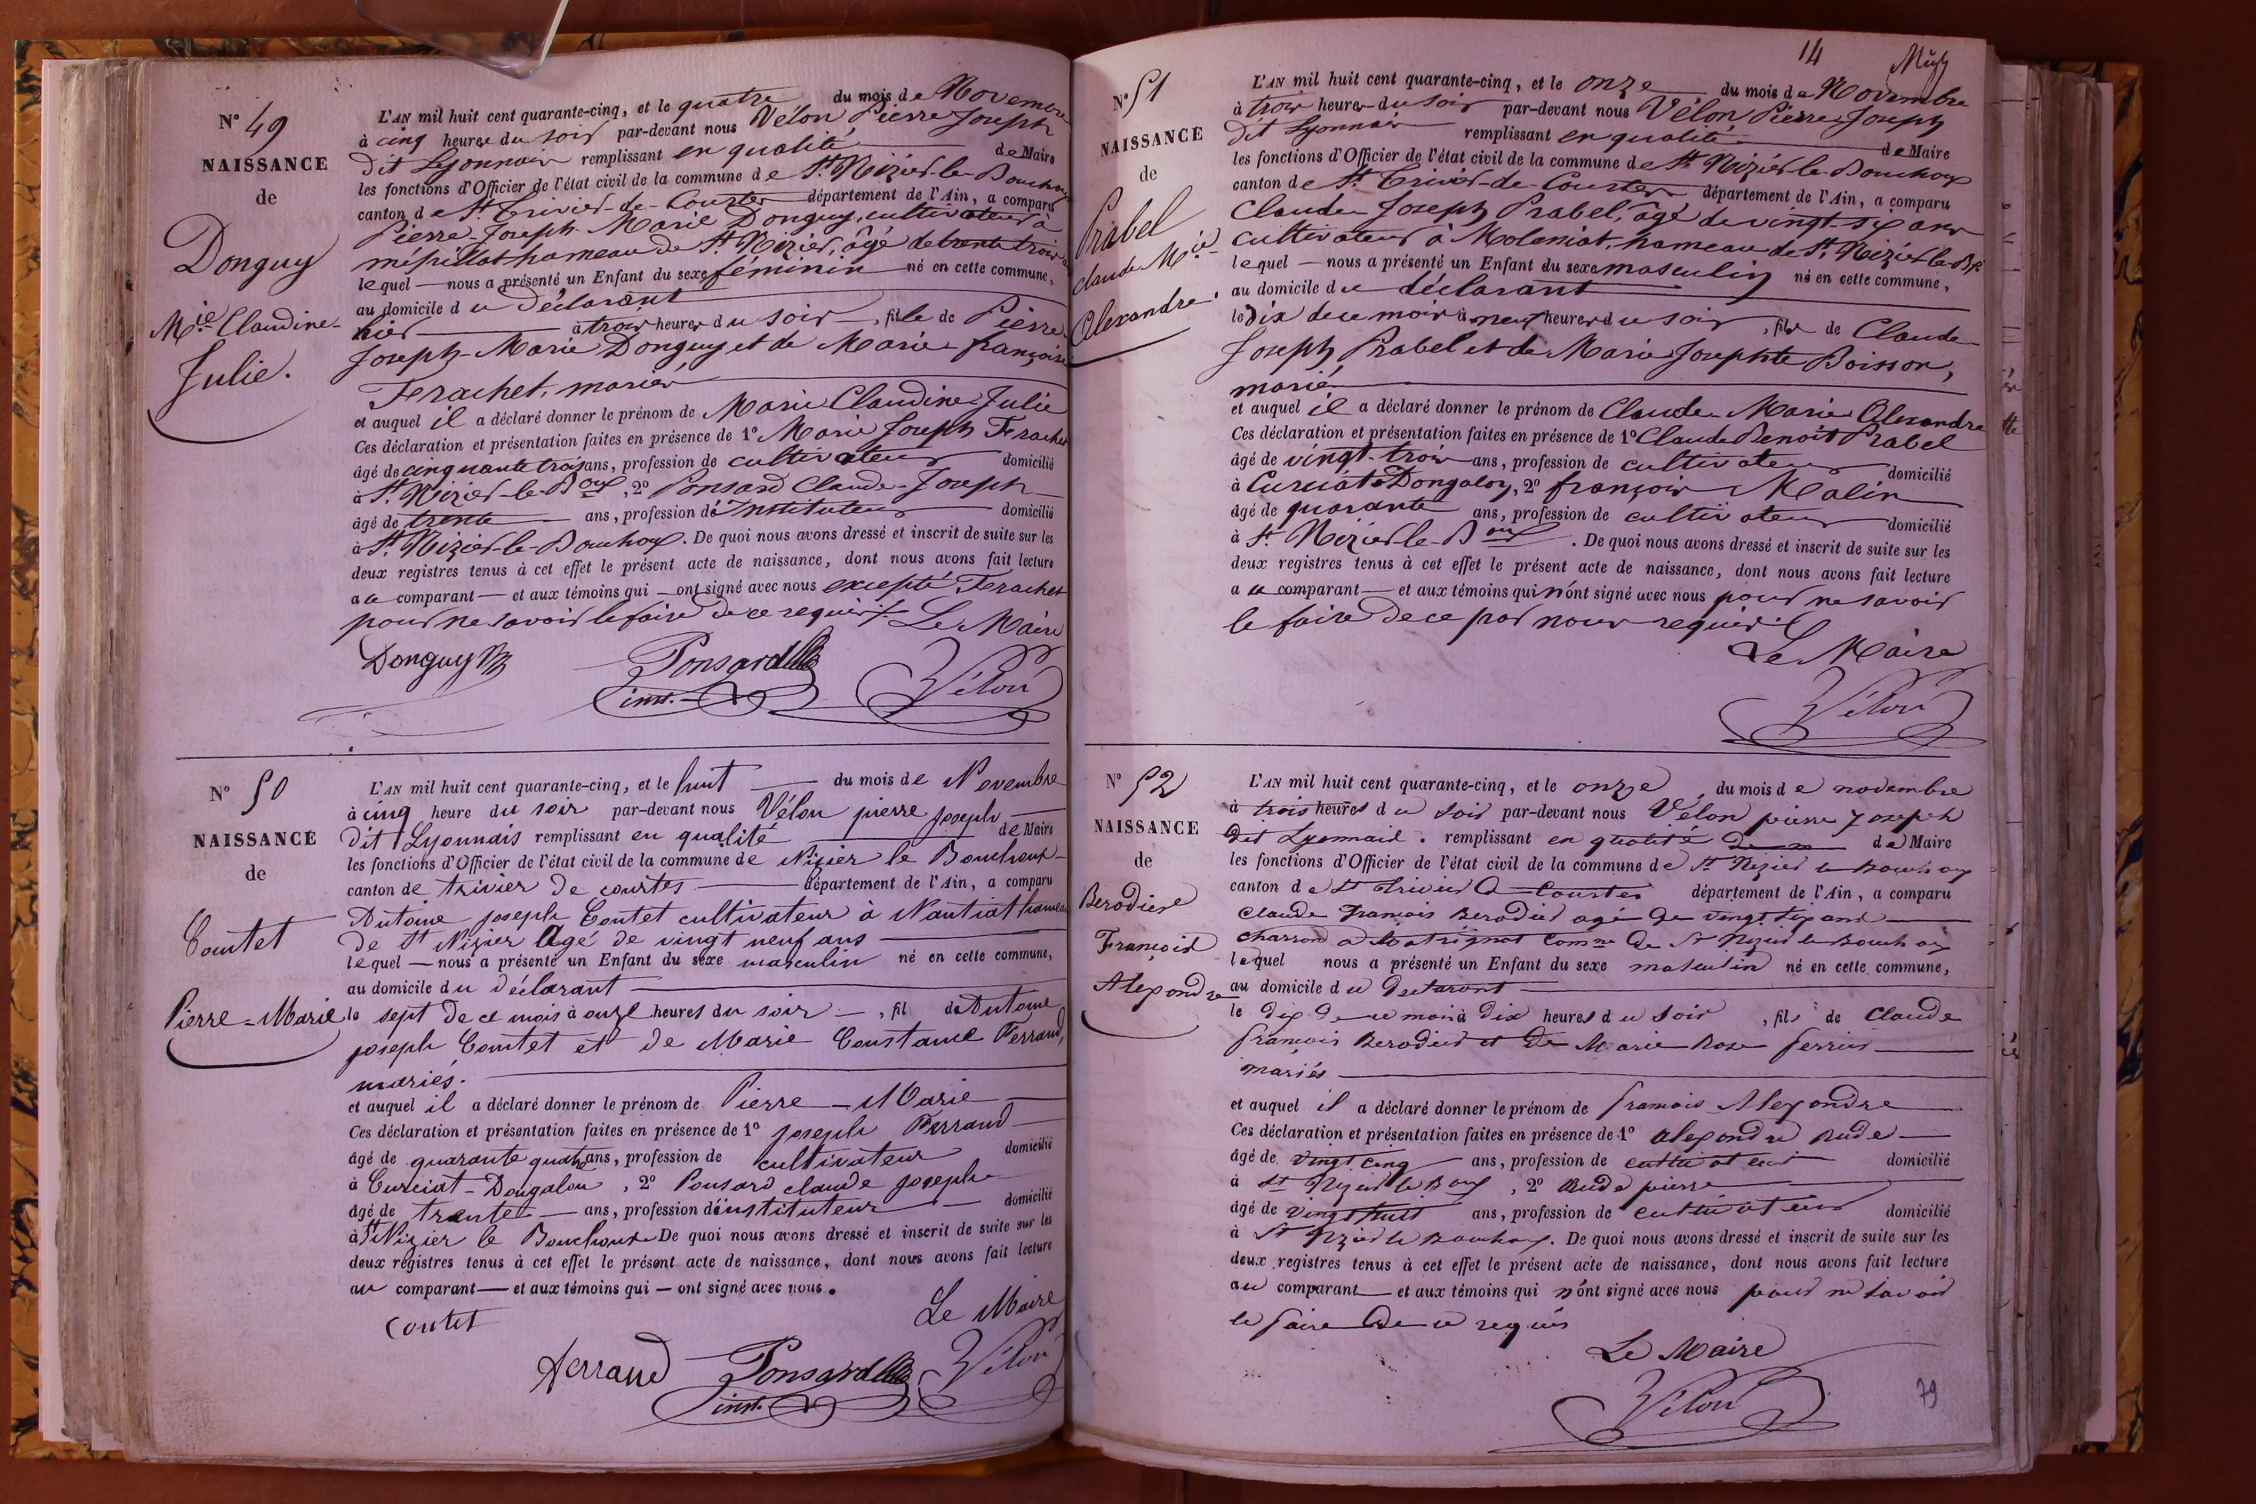 N° 49
NAISSANCE
de
Donguy
Mie Claudine
Julie.
L'AN mil huit cent quarante-cinq, et le quatre du mois de Novembre
à cinq heures du soir par-devant nous Vélon Pierre Joseph
dit Lyonnais remplissant en qualité de Maire
les fonctions d'Officier de l'état civil de la commune de St. Nizier-le-Bouchoux
canton de St. Trivier-de-Courtes département de l'Ain, a comparu
Pierre-Joseph-Marie Donguy, cultivateur à
mépillat hameau de St. Nizier, âgé de trente trois
lequel — nous a présenté un Enfant du sexe féminin né en cette commune,
au domicile du Déclarant
hier à trois heures du soir, fille de Pierre
Joseph-Marie Donguy et de Marie-françoise
Ferachet, mariés
et auquel il a déclaré donner le prénom de Marie Claudine Julie
Ces déclaration et présentation faites en présence de 1° Marie Joseph Ferachet
âgé de cinquante trois ans, profession de cultivateur domicilié
à St. Nizier-le-Boux, 2° Ponsard Claude-Joseph
âgé de trente ans, profession d'Instituteur domicilié
à St. Nizier-le-Bouchoux. De quoi nous avons dressé et inscrit de suite sur les
deux registres tenus à cet effet le présent acte de naissance, dont nous avons fait lecture
au comparant — et aux témoins qui — ont signé avec nous excepté Ferachet
pour ne savoir le faire de ce requis. Le Maire
Donguy Ponsard Vélon
inst.
N° 50
NAISSANCE
de
Comtet
Pierre-Marie
L'AN mil huit cent quarante-cinq, et le huit du mois de Novembre
à cinq heure du soir par-devant nous Vélon pierre joseph
dit Lyonnais remplissant en qualité de Maire
les fonctions d'Officier de l'état civil de la commune de Nizier le Bouchoux
canton de trivier de courtes département de l'Ain, a comparu
Antoine joseph Comtet cultivateur à Nantiat hameau
de St Nizier âgé de vingt neuf ans
lequel — nous a présenté un Enfant du sexe masculin né en cette commune,
au domicile du déclarant
le sept de ce mois à onze heures du soir —, fil de Antoine
joseph Comtet et de Marie Constance Ferrand,
mariés.
et auquel il a déclaré donner le prénom de Pierre-Marie
Ces déclaration et présentation faites en présence de 1° joseph Ferrand
âgé de quarante quatre ans, profession de cultivateur domicilié
à Curciat-Dongalon, 2° Ponsard claude joseph
âgé de trente — ans, profession d'instituteur domicilié
à St Nizier le Bouchoux De quoi nous avons dressé et inscrit de suite sur les
deux registres tenus à cet effet le présent acte de naissance, dont nous avons fait lecture
au comparant — et aux témoins qui — ont signé avec nous.
Le Maire
Contet
Ferrand Ponsard Vélon
inst.
14
N° 51
NAISSANCE
de
Prabel
Claude Mie
Alexandre
L'AN mil huit cent quarante-cinq, et le onze du mois de Novembre
à trois heures du soir par-devant nous Vélon Pierre Joseph
dit Lyonnais remplissant en qualité de Maire
les fonctions d'Officier de l'état civil de la commune de St. Nizier-le-Bouchoux
canton de St. Trivier-de-Courtes département de l'Ain, a comparu
Claude Joseph Prabel, âgé de vingt-six ans
cultivateur à Molaniat, hameau de St. Nizier-le-Bx
lequel — nous a présenté un Enfant du sexe masculin né en cette commune,
au domicile du déclarant
le dix de ce mois à neuf heures du soir, fils de Claude
Joseph Prabel et de Marie Josephte Boisson,
mariés
et auquel il a déclaré donner le prénom de Claude-Marie Alexandre
Ces déclaration et présentation faites en présence de 1° Claude Benoit Prabel
âgé de vingt-trois ans, profession de cultivateur domicilié
à Curciat Dongalon, 2° françois Malin
âgé de quarante ans, profession de cultivateur domicilié
à St. Nizier-le-Boux. De quoi nous avons dressé et inscrit de suite sur les
deux registres tenus à cet effet le présent acte de naissance, dont nous avons fait lecture
au comparant — et aux témoins qui n'ont signé avec nous pour ne savoir
le faire de ce par nous requis.
Le Maire
Vélon
N° 52
NAISSANCE
de
Berodier
François
Alexandre
L'AN mil huit cent quarante-cinq, et le onze, du mois de novembre
à trois heures du soir par-devant nous Vélon pierre Joseph
dit Lyonnais. remplissant en qualité de Maire
les fonctions d'Officier de l'état civil de la commune de St Nizier le Bouchoux
canton de St trivier de Courtes département de l'Ain, a comparu
Claude François Berodier agé de vingt six ans
charron à comne de St Nizier le Bouchoux
lequel nous a présenté un Enfant du sexe masculin né en cette commune,
au domicile du declarant
le dix de ce mois à dix heures du soir, fils de Claude
françois Berodier et de Marie Rose ferrier
mariés
et auquel il a déclaré donner le prénom de françois Alexandre
Ces déclaration et présentation faites en présence de 1° alexandre Rude
âgé de vingt cinq ans, profession de cultivateur domicilié
à St Nizier le Boux, 2° Rude pierre
âgé de vingt huit ans, profession de cultivateur domicilié
à St Nizier le Bouchoux. De quoi nous avons dressé et inscrit de suite sur les
deux registres tenus à cet effet le présent acte de naissance, dont nous avons fait lecture
au comparant — et aux témoins qui n'ont signé avec nous pour ne savoir
le faire de ce requis
Le Maire
Vélon
79